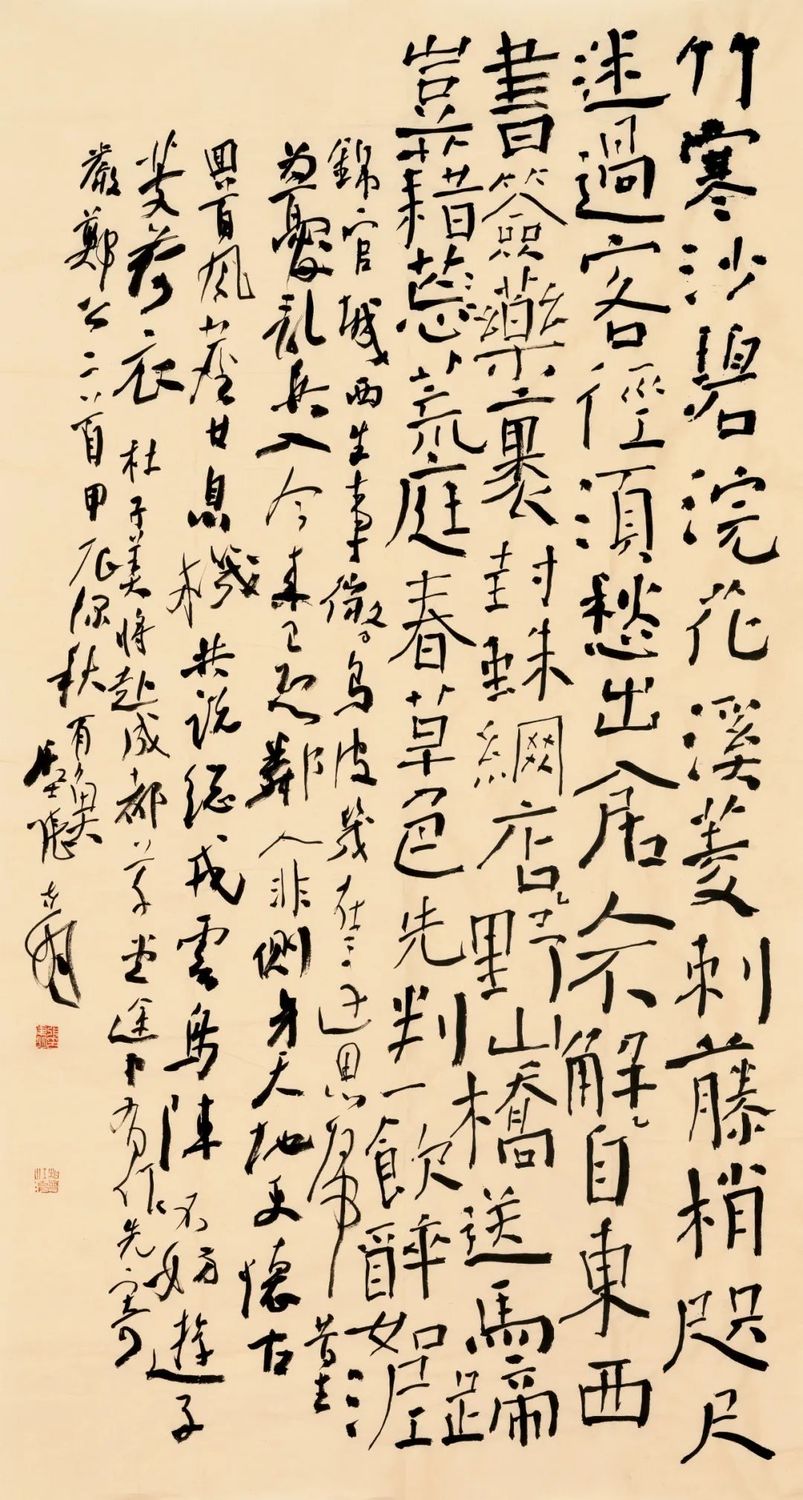 竹寒沙碧浣花溪菱刺藤梢咫尺
迷過客徑須愁出入居人不解自東西
書簽藥裹封蛛網店野山橋送馬蹄
豈藉慈荒庭春草色先判一飲醉如
錦官城西生事微烏皮幾在還思歸昔去
為憂亂兵入今來已恐鄰人非側身天地更懷古
回首風塵甘息機共說總戎雲鳥陣不妨遊子
芰荷衣 杜子美將赴成都草堂途中有作先寄
嚴鄭公二首甲辰深秋